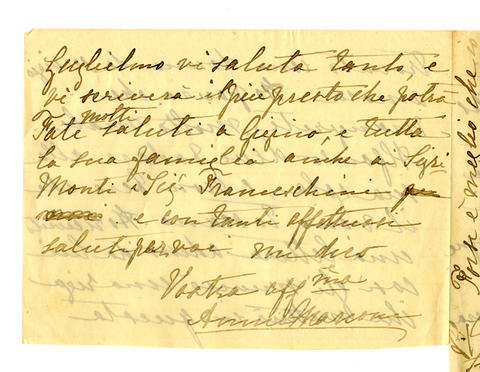 Guglielmo vi saluta tanto, e
vi scriverà il piu presto che potrà
Fate molti saluti a Gigino, e tutta
la sua famiglia anche a Sigri
Monti e Sig Franceschini
e con tanti affettuosi
saluti per voi mi dico
Vostra affma
Annie Marconi
Forse è meglio che io